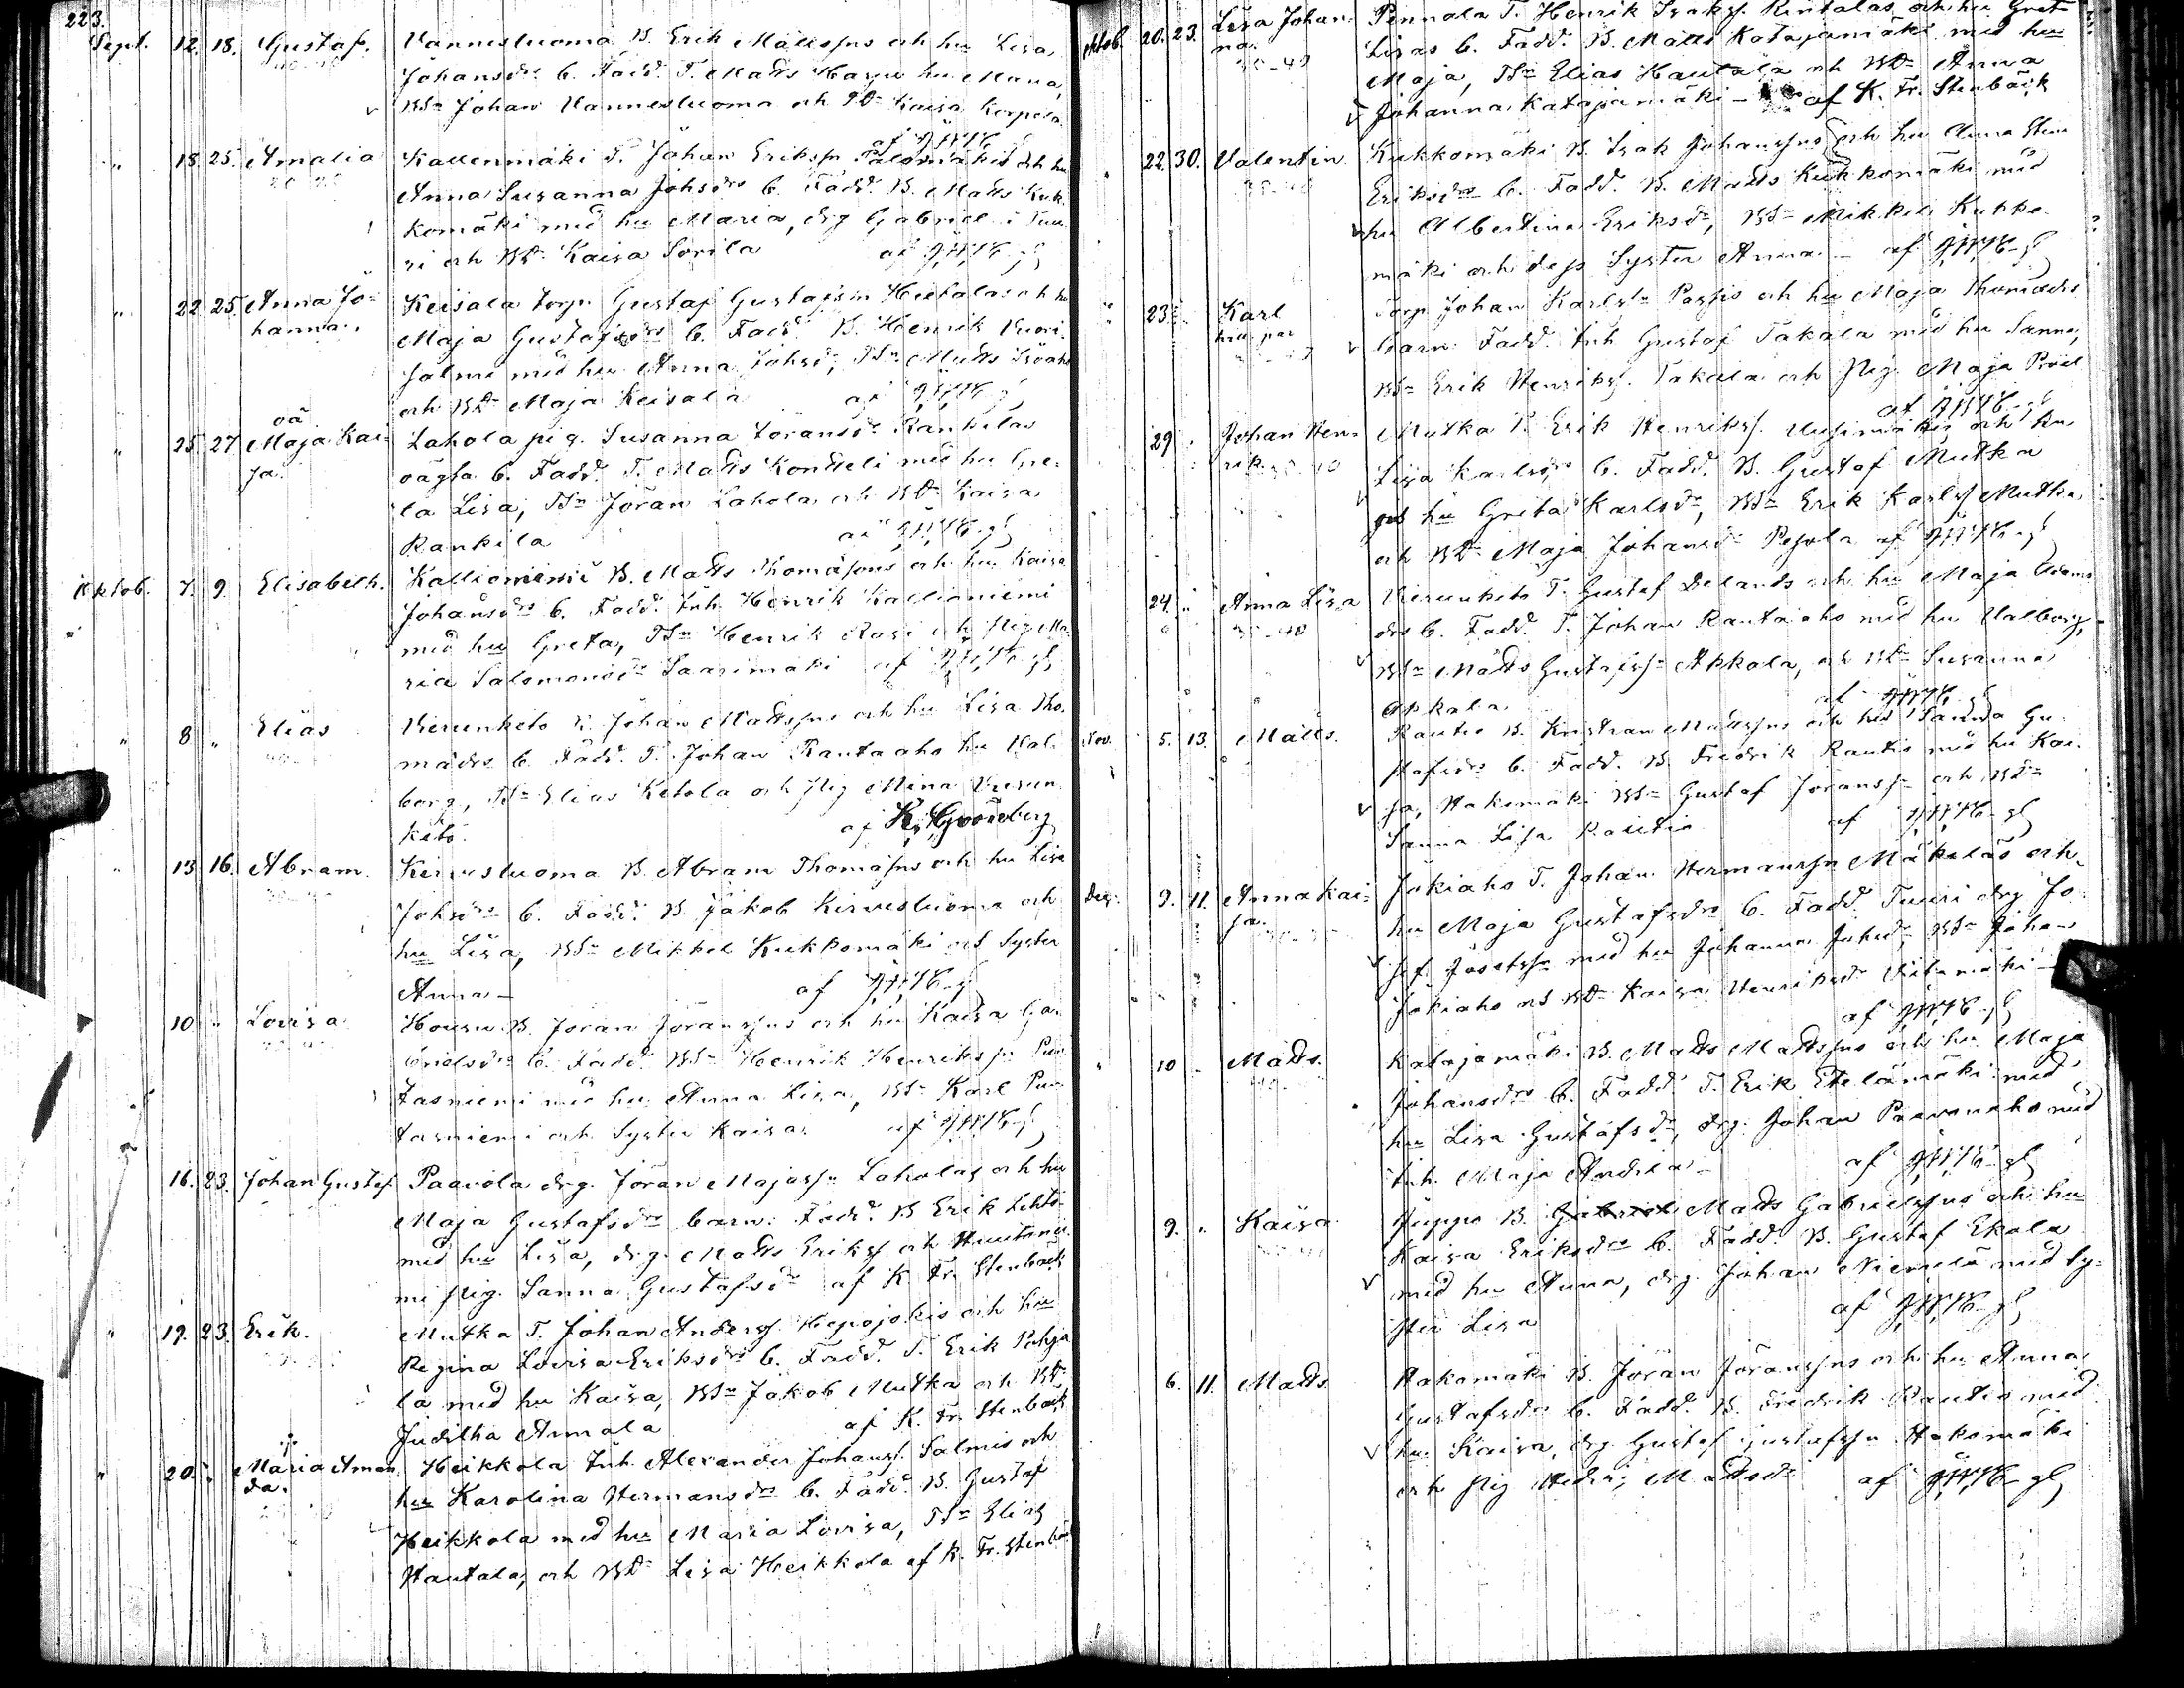 223.
Sept. 12. 18. Gustaf. Vannesluoma B. Erik Mattssns och hu Lisa
Johansdrs b. Fadd. T. Matts Harju hu Maria,
BSn Johan Vannesluoma och Kaisa Korpela
" 18. 25. Amalia Kallenmäki T. Johan Erikssn och hu
Anna Susanna Johsdrs b. Fadd. B. Matts Kuk
komäki med hu Maria, drg Gabriel i Tuu
ri och BDr Kaisa Sorila af
" 22. 25. Anna Jo= Keisala torp. Gustaf Gustafssn Hietalas och hu
hanna. Maja Gustafsdrs b. Fadd. B. Henrik Vuori
salmi med hu Anna Johsdr, TSn Matts
och BDr Maja Keisala af
oä
" 25. 27. Maja Kai= Lahola pig. Susanna Göransdr Rankilas
sa. oägta b. Fadd. T. Matts Kontteli med hu Gre=
ta Lisa, TSn Jöran Lahola och BDr Kaisa
Rankila af
Oktob. 7. 9. Elisabeth. Kallioniemi B. Matts Thomassns och hu Kaisa
Johansdrs b. Fadd. Inh. Henrik Kallioniemi
med hu Greta, TSn Henrik Rasi och pig Ma=
ria Salomonsdr Saarimäki af
" 8 " Elias Vierunketo B. Johan Mattssns och hu Lisa Tho.
masdrs b. Fadd. T. Johan Rautaaho hu Val
borg, TSn Elias Ketola och pig Mina Vierun
keto. af K. Grönberg
" 13 16. Abram. Kirvesluoma B. Abram Thomassns och hu Lisa
Johsdrs b. Fadd. B. Jakob Kirvesluoma och
hu Lisa, BSn Mikkel Kukkomäki och Syster
Anna — af
10 " Lovisa B. Jöran Jöranssns och hu Kaisa Ga
brielsdrs b. Fadd. BSn Henrik Henrikssn Pun
tasniemi med hu Anna Lisa, BSn Karl Pun
tasniemi och Syster Kaisa. af
16. 23. Johan Gustaf Paavola drg. Jöran Majassn Laholas och hu
Maja Gustafsdrs barn. Fadd. B Erik Lehto
med hu Lisa, drg. Matts Erikss. och
mi pig. Sanna Gustafsdr af K. Fr. Stenbäck
" 19. 23. Erik. Mutka T. Johan Anderss. Hepojokis och hu
Regina Lovisa Eriksdrs b. Fadd. T. Erik Pohja
la med hu Kaisa, BSn Jakob Mutka och BDr
Juditha Ammala af K. Fr. Stenbäck
" 20. " Maria Aman Heikkola Inh. Alexander Johanss. Salmis och
da. hu Karolina Hermansdrs b. Fadd. B. Gustaf
Heikkola med hu Maria Lovisa, TSn Elias
Hautala, och BDr Lisa Heikkola af K. Fr. Stenbäck
Oktob. 20. 23. Lisa Johan= Pennala T. Henrik Isakss. Rintalas och hu Greta
na. Lisas b. Fadd. B. Matts Katajamäki med hu
Maja, TSn Elias Hautala och BDr Anna
Johanna Katajamäki — af K. Fr. Stenbäck
" 22. 30. Valentin Kukkomäki B. Isak Johanssns och hu Anna
Eriksdrs b. Fadd. B. Matts Kukkomäki med
hu Albertina Eriksdr, BSn Mikkel Kukko
mäki och dess Syster Anna — af
" 23. " Karl Torp. Johan Karlssn Passis och hu Maja Thomasdrs
barn. Fadd. Inh Gustaf Takala med hu Sanna,
BSn Erik Henrikss. Takala och Pig. Maja
af
29 " Johan Hen= Mutka T. Erik Henrikss. Uusimäkis och hu
rik. Lisa Karlsdrs b. Fadd. B. Gustaf Mutka
och hu Greta Karlsdr, BSn Erik Karlss Mutka
och BDr Maja Johansdr Pesola af
24. " Anna Lisa Vierunketo T. Gustaf Delands och hu Maja Adams
drs b. Fadd. T. Johan Rautaaho med hu Valborg,
BSn Matts Gustafssn Akkola, och BDr Susanna
Akkala. af
Nov. 5. 13. Matts. Rautio B. Kristian Mattssns och hu Sanna Gu
stafsdrs b. Fadd. B. Fredrik Rautio med hu Kai
sa, Hakomäki BSn Gustaf Jöranssn och BDr
Sanna Lisa Rautio. af
Dec. 9. 11. Anna Kai= Jokiaho T. Johan Hermanssn Mäkeläs och
sa. hu Maja Gustafsdrs b. Fadd. Tuuri drg Jo
sef Josefssn med hu Johanna Johsdr, BSn Johan
Jokiaho och BDr Kaisa Henriksdr —
af
" 10 " Matts. Katajamäki B. Matts Mattssns och hu Maja
Johansdrs b. Fadd. T. Erik Etelämäki med
hu Lisa Gustafsdr, drg. Johan Paavonaho med
Inh. Maja Andila — af
9. " Kaisa Juppo B. Gabriel Matts Gabrielssns och hu
Kaisa Eriksdrs b. Fadd. B. Gustaf Ekola
med hu Anna, drg. Johan Niemelä med Sy=
ster Lisa af
6. 11. Matts Hakomäki B. Jöran Jöranssns och hu Anna
Gustafsdrs b. Fadd. B. Fredrik Rautio med
hu Kaisa, drg. Gustaf Gustafssn Hakomäki
och Pig Mattsdr af